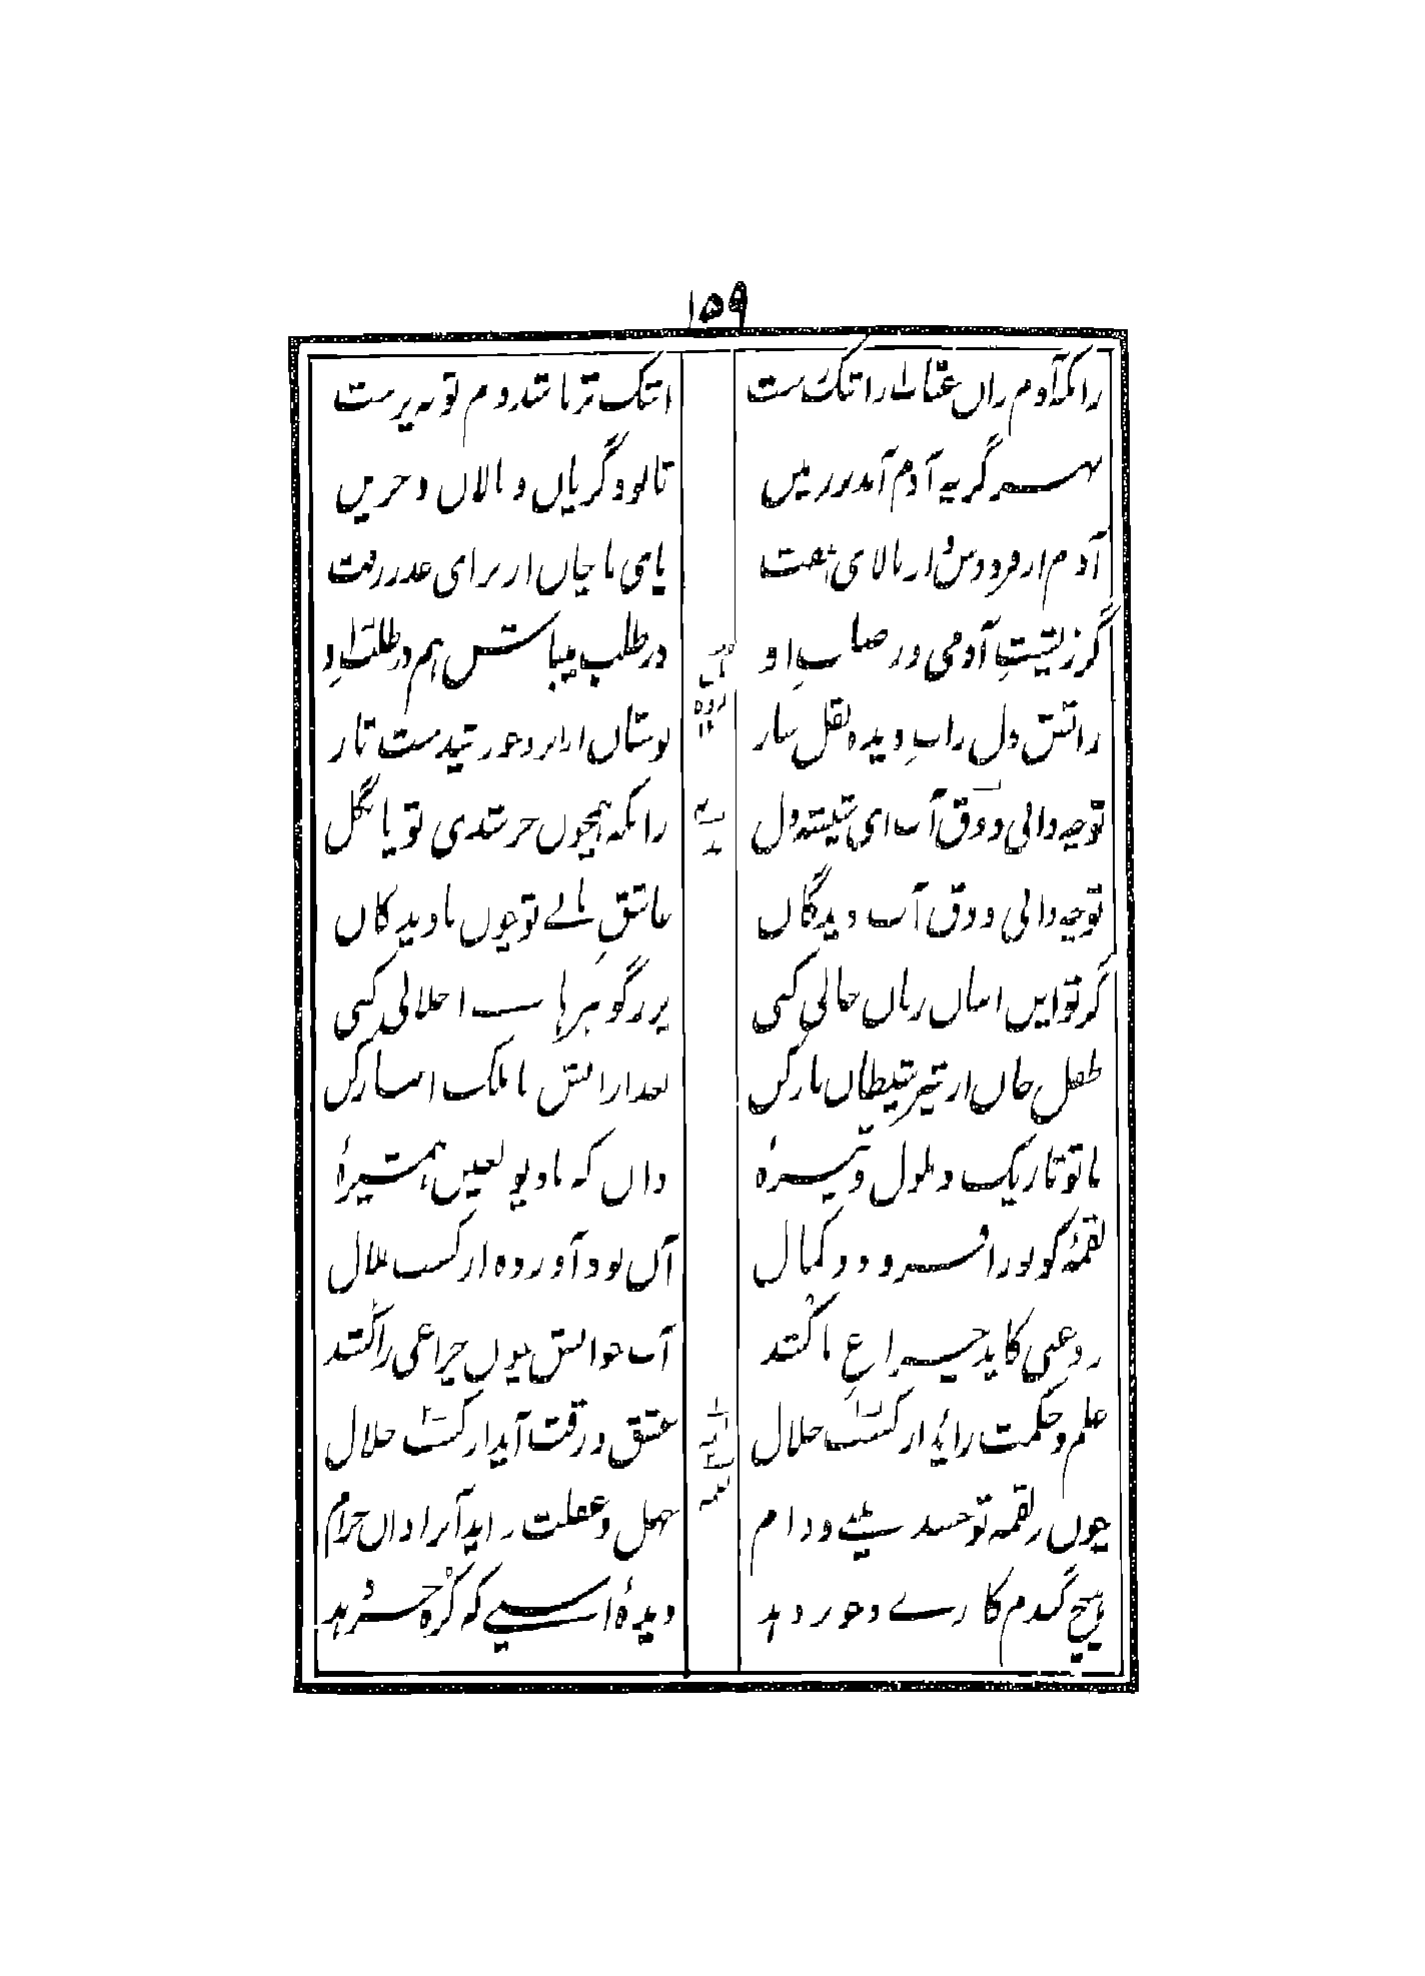 ۱۵۹
زانکه آدم زاں عتاب از اشک رست اشک تر باشد دم توبه پرست
بهر گریه آدم آمد بر زمیں تا بود گریاں و نالاں و حزیں
آدم از فردوس و از بالای هفت پای ماچاں از برای عذر رفت
گر ز پشتِ آدمی وز صلبِ او در طلب میباش هم در طلبِ او
ز آتش دل و آبِ دیده نقل ساز بوستاں از ابر و خورشیدست تاز
تو چه دانی ذوق آب ای شیشه دل زانکه همچوں خر شدی تو پا بگل
تو چه دانی ذوق آب دیدگاں عاشقِ نانے تو چوں نادیدگاں
گر تو ایں انباں ز ناں خالی کنی پر ز گوهرهاے اجلالی کنی
طفل جاں از شیر شیطاں باز کن بعد ازانش با ملک انباز کن
تا تو تاریک و ملول و تیرۀ داں که با دیو لعیں همشیرۀ
لقمۀ کو نور افزود و کمال آں بود آورده از کسب حلال
روغنی کاید چراغِ ما کُشد آب خوانش چوں چراغی را کُشد
علم و حکمت زاید از کسبِ حلال عشق و رقت آید از کسبِ حلال
چوں ز لقمه تو حسد بینے و دام جهل و غفلت زاید آنرا داں حرام
هیچ گندم کارے و جو بر دهد دیدۀ اسپے که کُرّه خر دهد